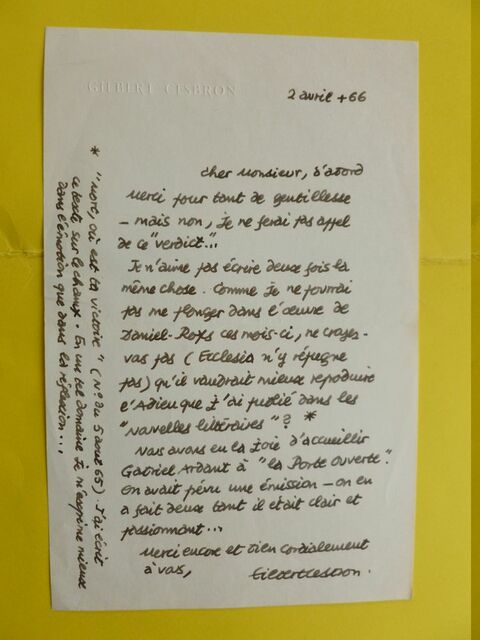 GILBERT CESBRON
2 avril +66
Cher Monsieur, d'abord
merci pour tant de gentillesse
— mais non, je ne ferai pas appel
de ce "verdict"...
Je n'aime pas écrire deux fois la
même chose. Comme je ne pourrai
pas me plonger dans l'œuvre de
Daniel-Rops ces mois-ci, ne croyez-
vous pas (Ecclesia n'y répugne
pas) qu'il vaudrait mieux reproduire
l'Adieu que j'ai publié dans les
"Nouvelles littéraires" ? *
Nous avons eu la joie d'accueillir
Gabriel Ardant à "la Porte Ouverte".
On avait prévu une émission — on en
a fait deux tant il était clair et
passionnant...
Merci encore et bien cordialement
à vous,
Gilbert Cesbron.
* "Mort, où est ta victoire" (N° du 5 août 65) J'ai écrit
ce texte sur le champ. En un tel domaine je m'exprime mieux
dans l'émotion que dans la réflexion...